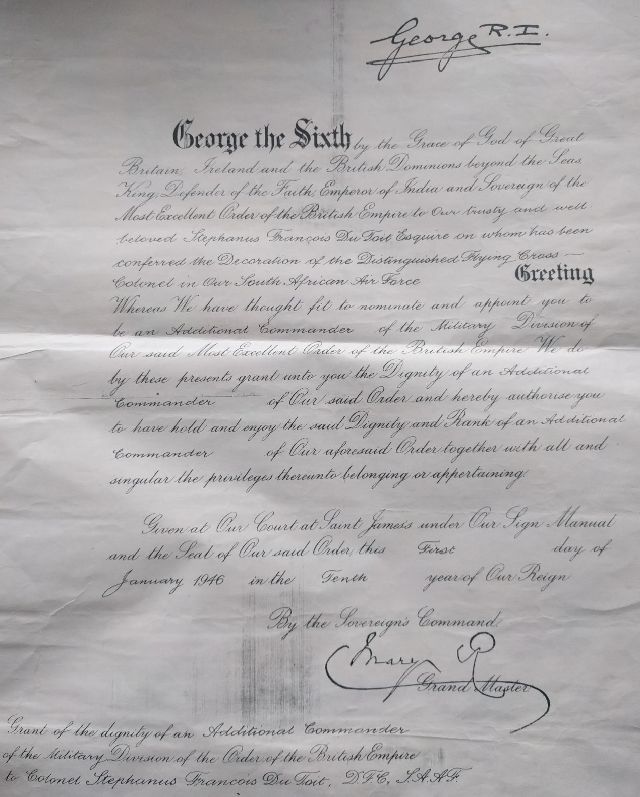 George R.I.
George the Sixth by the Grace of God of Great
Britain, Ireland and the British Dominions beyond the Seas
King, Defender of the Faith, Emperor of India and Sovereign of the
Most Excellent Order of the British Empire to Our trusty and well
beloved Stephanus François Du Toit Esquire on whom has been
conferred the Decoration of the Distinguished Flying Cross —
Colonel in Our South African Air Force Greeting
Whereas We have thought fit to nominate and appoint you to
be an Additional Commander of the Military Division of
Our said Most Excellent Order of the British Empire We do
by these presents grant unto you the Dignity of an Additional
Commander of Our said Order and hereby authorise you
to have hold and enjoy the said Dignity and Rank of an Additional
Commander of Our aforesaid Order together with all and
singular the privileges thereunto belonging or appertaining.
Given at Our Court at Saint James's under Our Sign Manual
and the Seal of Our said Order, this First day of
January, 1946 in the Tenth year of Our Reign
By the Sovereign's Command.
Mary R
Grand Master
Grant of the dignity of an Additional Commander
of the Military Division of the Order of the British Empire
to Colonel Stephanus Francois Du Toit, D.F.C., S.A.A.F.